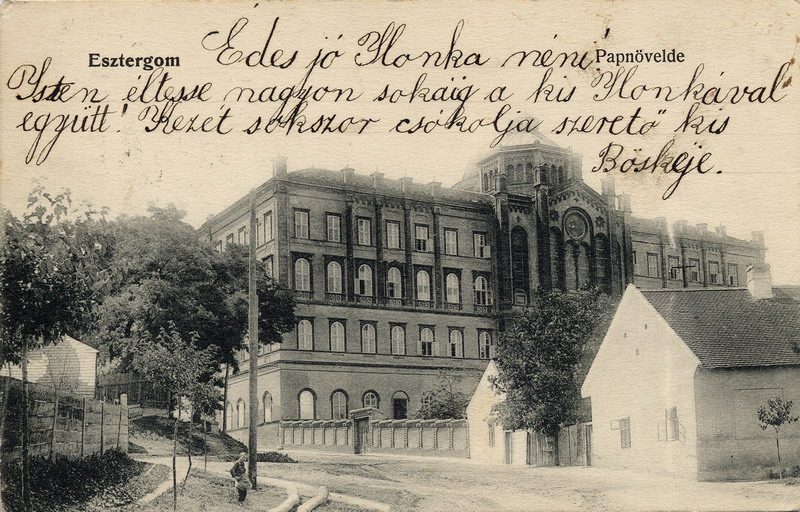 Esztergom
Papnövelde
Édes jó Ilonka néni
Isten éltesse nagyon sokáig a kis Ilonkával
együtt! Kezét sokszor csókolja szerető kis
Böskéje.